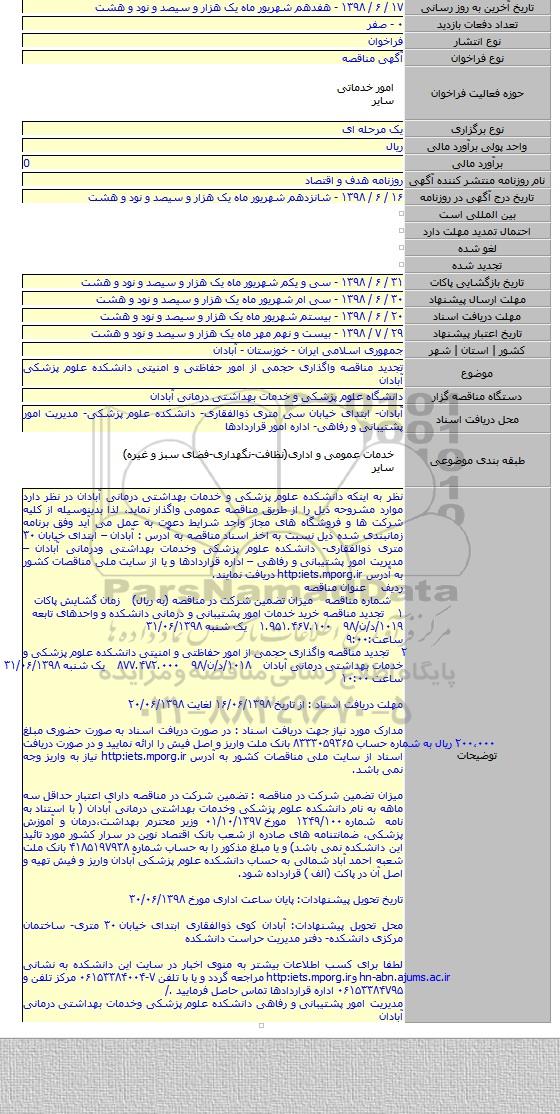 تاریخ آخرین به روز رسانی ۱۷ / ۶ / ۱۳۹۸ - هفدهم شهریور ماه یک هزار و سیصد و نود و هشت
تعداد دفعات بازدید ۰ - صفر
نوع انتشار فراخوان
نوع فراخوان آگهی مناقصه
حوزه فعالیت فراخوان امور خدماتی
سایر
نوع برگزاری یک مرحله ای
واحد پولی برآورد مالی ریال
برآورد مالی 0
نام روزنامه منتشر کننده آگهی روزنامه هدف و اقتصاد
تاریخ درج آگهی در روزنامه ۱۶ / ۶ / ۱۳۹۸ - شانزدهم شهریور ماه یک هزار و سیصد و نود و هشت
بین المللی است
احتمال تمدید مهلت دارد
لغو شده
تجدید شده
تاریخ بازگشایی پاکات ۳۱ / ۶ / ۱۳۹۸ - سی و یکم شهریور ماه یک هزار و سیصد و نود و هشت
مهلت ارسال پیشنهاد ۳۰ / ۶ / ۱۳۹۸ - سی ام شهریور ماه یک هزار و سیصد و نود و هشت
مهلت دریافت اسناد ۲۰ / ۶ / ۱۳۹۸ - بیستم شهریور ماه یک هزار و سیصد و نود و هشت
تاریخ اعتبار پیشنهاد ۲۹ / ۷ / ۱۳۹۸ - بیست و نهم مهر ماه یک هزار و سیصد و نود و هشت
کشور | استان | شهر جمهوری اسلامی ایران - خوزستان - آبادان
موضوع تجدید مناقصه واگذاری حجمی از امور حفاظتی و امنیتی دانشکده علوم پزشکی
آبادان
دستگاه مناقصه گزار دانشگاه علوم پزشکی و خدمات بهداشتی درمانی آبادان
محل دریافت اسناد آبادان- ابتدای خیابان سی متری ذوالفقاری- دانشکده علوم پزشکی- مدیریت امور
پشتیبانی و رفاهی- اداره امور قراردادها
طبقه بندی موضوعی خدمات عمومی و اداری(نظافت-نگهداری-فضای سبز و غیره)
سایر
توضیحات
نظر به اینکه دانشکده علوم پزشکی و خدمات بهداشتی درمانی آبادان در نظر دارد
موارد مشروحه ذیل را از طریق مناقصه عمومی واگذار نماید، لذا بدینوسیله از کلیه
شرکت ها و فروشگاه های مجاز واجد شرایط دعوت به عمل می آید وفق برنامه
زمانبندی شده ذیل نسبت به اخذ اسناد مناقصه به آدرس : آبادان – ابتدای خیابان ۳۰
متری ذوالفقاری- دانشکده علوم پزشکی وخدمات بهداشتی ودرمانی آبادان –
مدیریت امور پشتیبانی و رفاهی – اداره قراردادها و یا از سایت ملی مناقصات کشور
به آدرس http:iets.mporg.ir دریافت نمایند.
ردیف عنوان مناقصه
شماره مناقصه میزان تضمین شرکت در مناقصه (به ریال) زمان گشایش پاکات
۱ تجدید مناقصه خرید خدمات امور پشتیبانی و درمانی دانشکده و واحدهای تابعه
۱۰۱۹/د/ن/۹۸ ۱.۹۵۱.۴۶۷.۱۰۰ یک شنبه ۳۱/۰۶/۱۳۹۸
ساعت:۹:۰۰
۲ تجدید مناقصه واگذاری حجمی از امور حفاظتی و امنیتی دانشکده علوم پزشکی و
خدمات بهداشتی درمانی آبادان ۱۰۱۸/د/ن/۹۸ ۸۷۷.۴۷۲.۰۰۰ یک شنبه ۳۱/۰۶/۱۳۹۸
ساعت ۱۰:۰۰
مهلت دریافت اسناد : از تاریخ ۱۶/۰۶/۱۳۹۸ لغایت ۲۰/۰۶/۱۳۹۸
مدارک مورد نیاز جهت دریافت اسناد : در صورت دریافت اسناد به صورت حضوری مبلغ
۲۰۰،۰۰۰ ریال به شماره حساب ۸۳۳۳۰۵۹۳۶۵ بانک ملت واریز و اصل فیش را ارائه نمایید و در صورت دریافت
اسناد از سایت ملی مناقصات کشور به ادرس http:iets.mporg.ir نیاز به واریز وجه
نمی باشد.
میزان تضمین شرکت در مناقصه : تضمین شرکت در مناقصه دارای اعتبار حداقل سه
ماهه به نام دانشکده علوم پزشکی وخدمات بهداشتی درمانی آبادان ( با استناد به
نامه شماره ۱۲۴۹/۱۰۰ مورخ ۰۱/۱۰/۱۳۹۷ وزیر محترم بهداشت،درمان و آموزش
پزشکی، ضمانتنامه های صادره از شعب بانک اقتصاد نوین در سرار کشور مورد تائید
این دانشکده نمی باشد) و یا مبلغ مذکور را به حساب شماره ۴۱۸۵۱۹۷۹۳۸ بانک ملت
شعبه احمد آباد شمالی به حساب دانشکده علوم پزشکی آبادان واریز و فیش تهیه و
اصل آن در پاکت (الف ) قرارداده شود.
تاریخ تحویل پیشنهادات: پایان ساعت اداری مورخ ۳۰/۰۶/۱۳۹۸
محل تحویل پیشنهادات: آبادان کوی ذوالفقاری ابتدای خیابان ۳۰ متری- ساختمان
مرکزی دانشکده- دفتر مدیریت حراست دانشکده
لطفا برای کسب اطلاعات بیشتر به منوی اخبار در سایت این دانشکده به نشانی
hn-abn.ajums.ac.ir و http:iets.mporg.ir مراجعه گردد و یا با تلفن ۷-۰۶۱۵۳۳۸۴۰۰۴ مرکز تلفن و
۰۶۱۵۳۳۸۴۷۹۵ اداره قراردادها تماس حاصل فرمایید ./
مدیریت امور پشتیبانی و رفاهی دانشکده علوم پزشکی وخدمات بهداشتی درمانی
آبادان
ParsNamadData
پایگاه اطلاع رسانی مناقصه و مزایده
۰۲۱-۸۸۳۴۹۶۷۰-۵